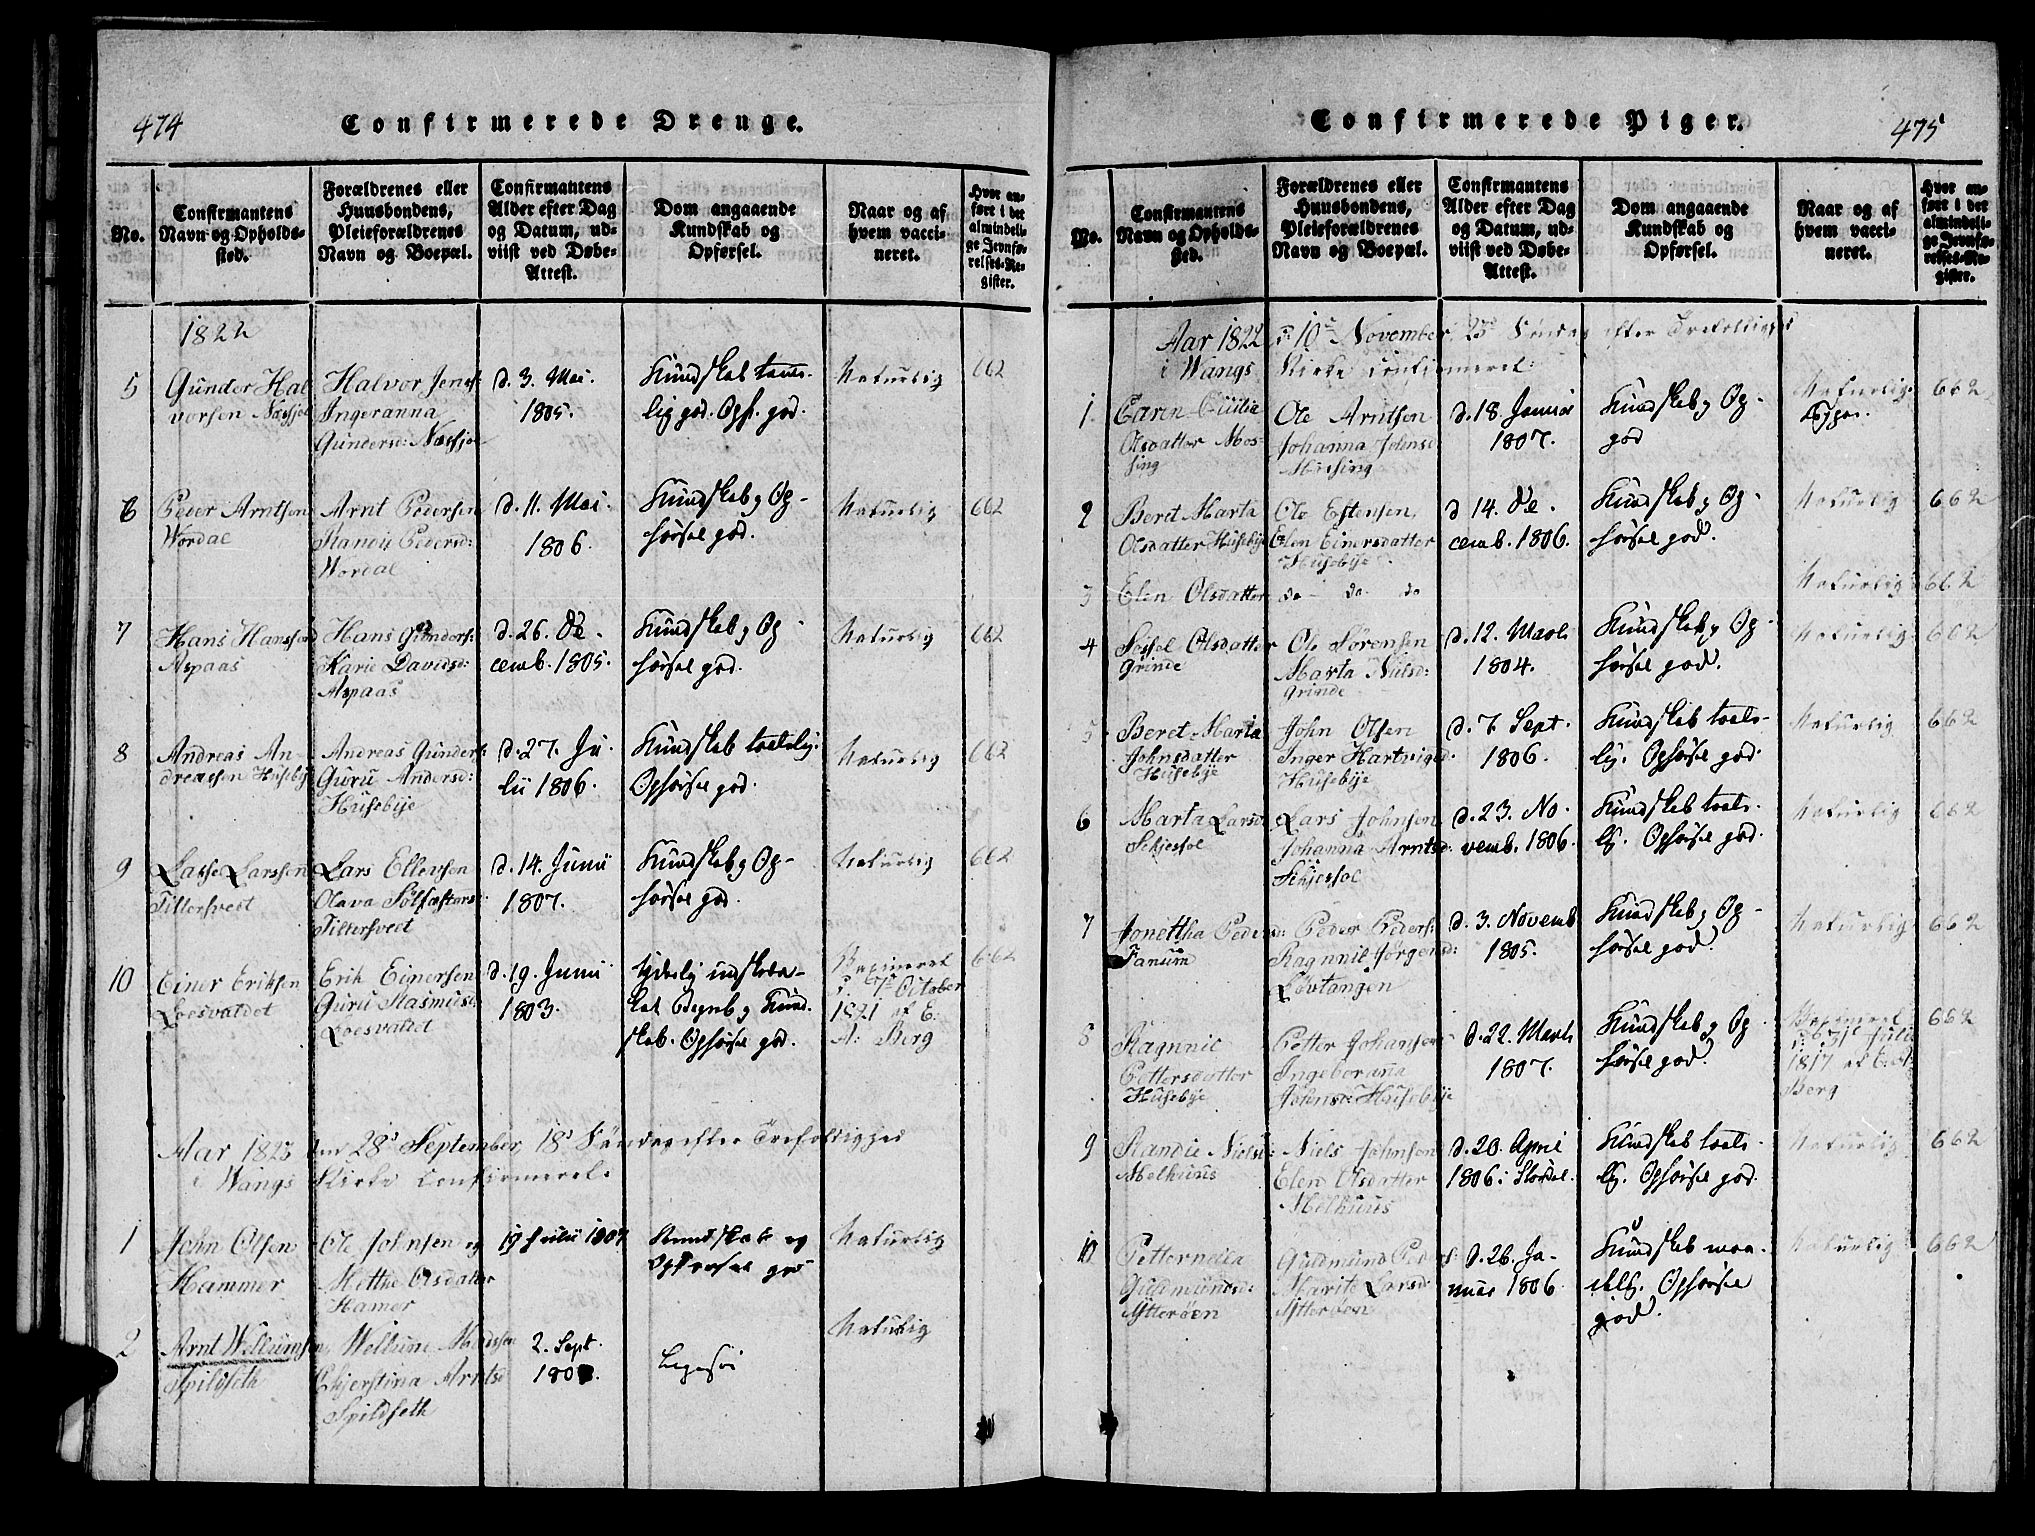 474
Confirmerede Drenge.
No.
Confirmantens
Navn og Opholds-
sted.
Forældrenes eller
Huusbondens,
Pleieforældrenes
Navn og Boepæl.
Confirmantens
Alder efter Dag
og Datum, ud-
viist ved Døbe-
Attest.
Dom angaaende
Kundskab og
Opførsel.
Naar og af
hvem vacci-
neret.
Hvor an-
ført i det
almindeli-
ge Jevnfø-
relses-Re-
gister.
1822
5
Gunder Hal
vorsen
Halvor Jens
Ingeranna
Gunders:
d. 3. Mai.
1805.
Kundskab taae-
lig god. Opf. god.
Naturlig
662
6
Peder Arntsen
Wordal
Arnt Pedersen
Randie Peders:
Wordal
d. 11. Mai.
1806.
Kundskab og Op-
førsel god.
Naturlig
662
7
Hans Hansen
Aspaas
Hans Gunders:
Karie Davids:
Aspaas
d. 26. De-
cemb. 1805.
Kundskab og Op-
førsel god.
Naturlig
662
8
Andreas An-
dreassen Husebye
Andreas Gunders:
Guru Anders:
Husebye
d. 27. Ju-
lii 1806.
Kundskab taalelig.
Opførsel god.
Naturlig
662
9
Lasse Larssen
Tillersvedt
Lars Ellevsen
Olava
Tillersvedt
d. 14. Junii
1807.
Kundskab og Op-
førsel god.
Naturlig
662
10
Einer Eriksen
Loesvaldet
Erik Einersen
Guru Rasmus:
Loesvaldet
d. 19. Junii
1803.
skab. Opførsel god.
Vaxineret
October
1821 af E:
A: Berg
662
Aar 1823 den 28de September, 18de Søndag efter Trefoldighed
i Wangs Kirke Confirmerede
1
John Olsen
Hammer
Ole Johnsen og
Mette Olsdatter
Hamer
Kundskab og
Opførsel god
Naturlig
2
Arnt Wellumsen
Spildseth
Wellum
Chjerstina Arnts
Spildseth
2. Sept.
Ligesøe
Naturlig
Confirmerede Piger.
475
No.
Confirmantens
Navn og Opholds-
sted.
Forældrenes eller
Huusbondens,
Pleieforældrenes
Navn og Boepæl.
Confirmantens
Alder efter Dag
og Datum, ud-
viist ved Døbe-
Attest.
Dom angaaende
Kundskab og
Opførsel.
Naar og af
hvem vacci-
neret.
Hvor an-
ført i det
almindeli-
ge Jevnfø-
relses-Re-
gister.
Aar 1822 d: 10de November 23de Søndag efter Trefoldighed
i Wangs Kirke confirmeret:
1.
Caren
Olsdatter Mos-
sing
Ole Arntsen
Johanna Johns:
d. 18. Janúar
1807.
Kundskab og Op-
god
Naturlig
662
2
Beret Marta
Olsdatter Husebye
Ole Estensen
Elen Einersdatter
Husebye
d 14. De-
cemb. 1806.
Kundskab og Op-
førsel god.
Naturlig
662
3
Elen Olsdatter
do - do do
Naturlig
662
4
Sessel Olsdatter
Grinde
Ole Sörensen
Marta Niels:
Grinde
d. 12. Marti
1804.
Kundskab og Op-
førsel god.
Naturlig
662
5
Beret Marta
Johnsdatter
Husebye
John Olsen
Inger Hartvigsd:
Husebye
d. 7. Sept.
1806.
Kundskab taale-
lig. Opførsel god
Naturlig
662
6
Marta Lars:
Schjesfol
Lars Johnsen
Johanna Arnts:
Schjesfol
d. 23. No-
vemb. 1806.
Kundskab taale-
lig. Opførsel god.
Naturlig
662
7
Jonetha Peders:
Fanum
Peder Peders:
Ragnnil Jörgens:
Løvtangen
d. 3. Novemb
1805.
Kundskab og Op-
førsel god.
Naturlig
662
8
Ragnnil
Pettersdatter
Husebye
Petter Johansen
Ingeborana
Johns: Husebye
d. 22. Marti
1807.
Kundskab og Op
førsel god.
Vaxineret
Juli
1817 af E: A:
Berg
662
9
Randie Niels:
Melhuus
Niels Johnsen
Elen Olsdatter
Melhuus
d. 20. April
1806 i Stordal.
Kundskab taale-
lig. Opførsel god.
Naturlig
662
10
Petternelia
Guldmunds:
Ytterøen
Guldmund Peders:
Marit Lars:
Ytterøen
d. 26. Ja-
nuar 1806.
Kundskab maa-
delig. Opførsel
god.
Naturlig
662